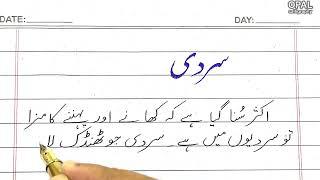 OPAL
DATE: DAY:
سردی
اکثر سُنا گیا ہے کہ کھانے اور پہننے کا مزا
تو سردیوں میں ہے ۔ سردی جو ٹھنڈک لا